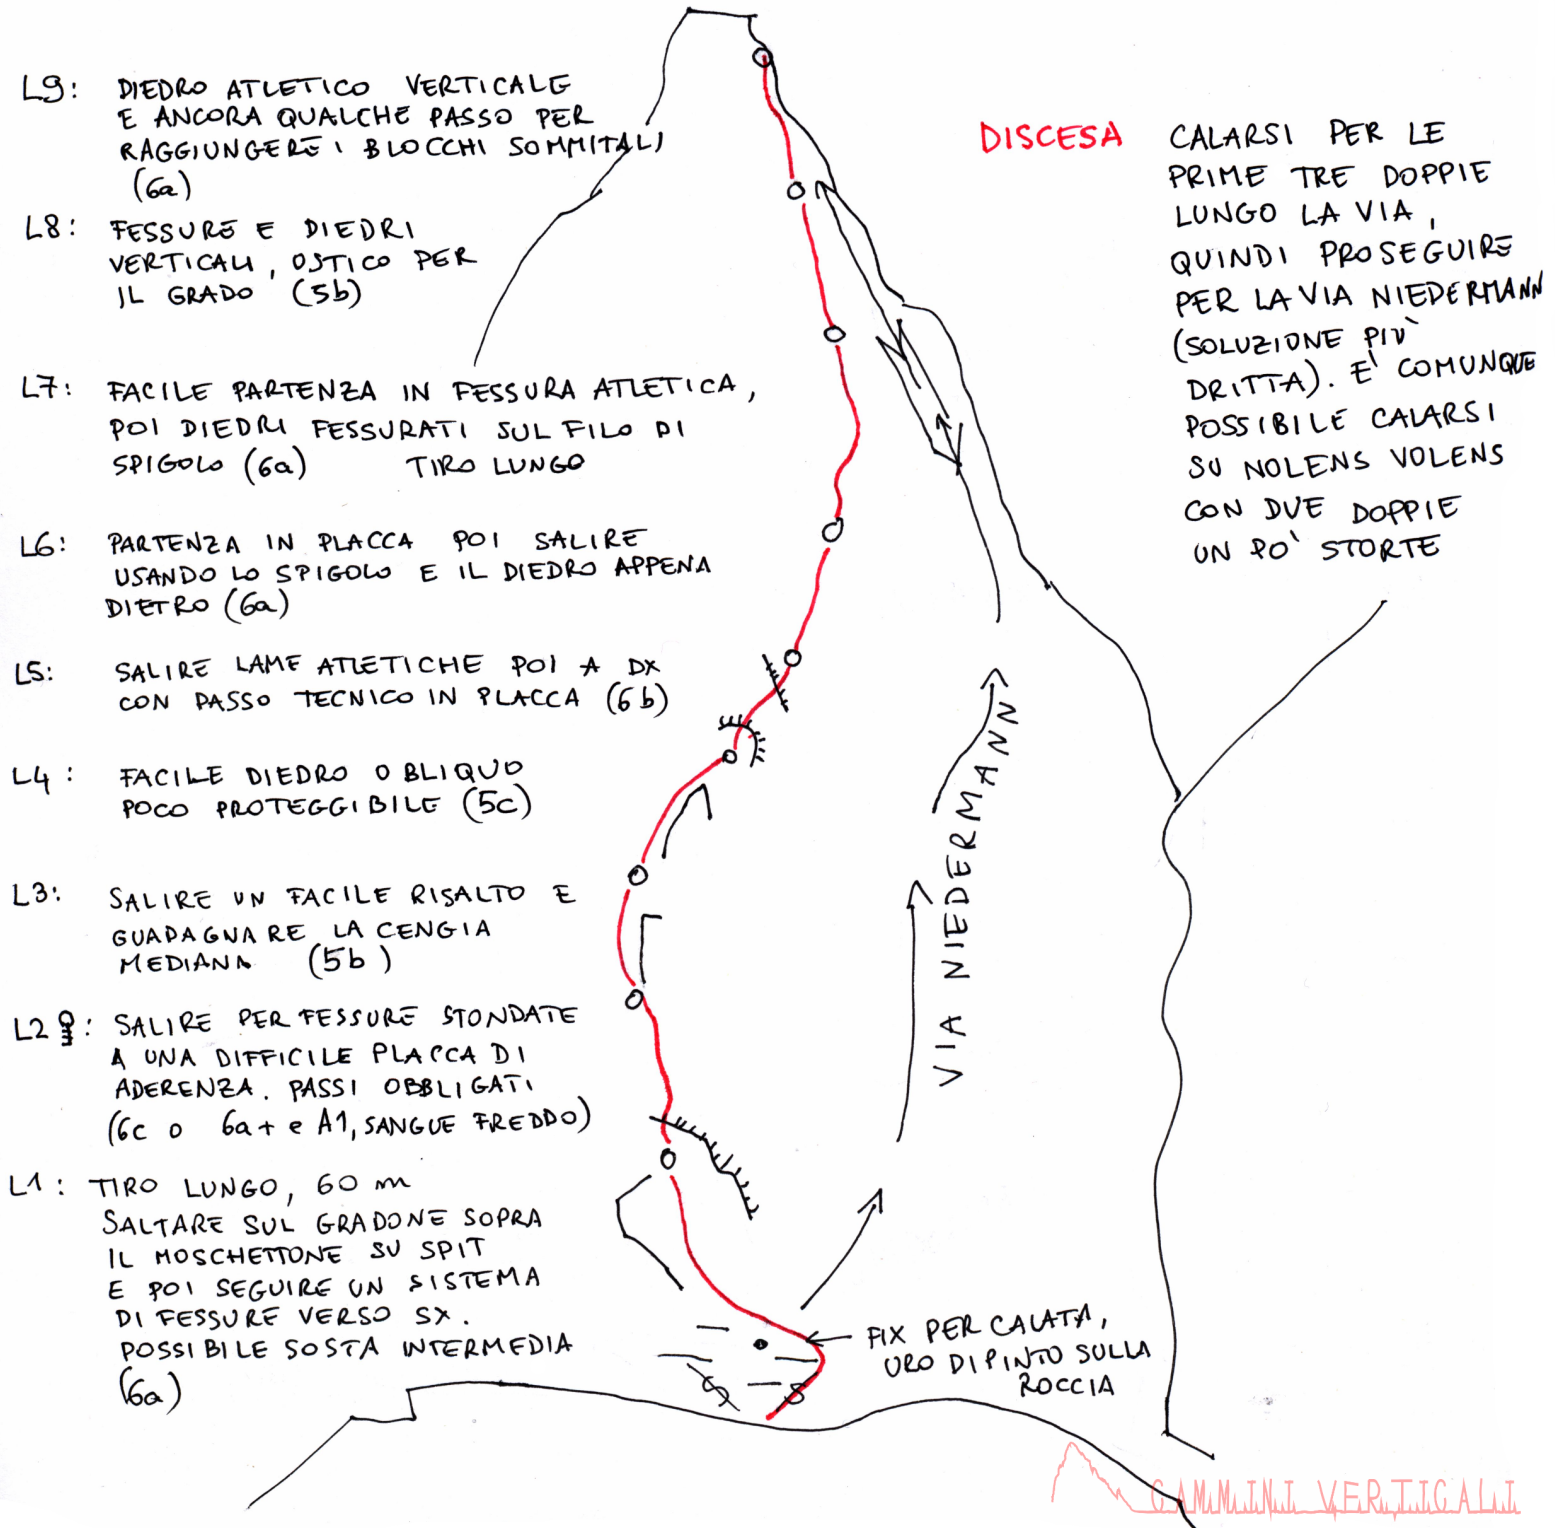 L9: DIEDRO ATLETICO VERTICALE
E ANCORA QUALCHE PASSO PER
RAGGIUNGERE I BLOCCHI SOMMITALI
(6a)
L8: FESSURE E DIEDRI
VERTICALI, OSTICO PER
IL GRADO (5b)
L7: FACILE PARTENZA IN FESSURA ATLETICA,
POI DIEDRI FESSURATI SUL FILO DI
SPIGOLO (6a) TIRO LUNGO
L6: PARTENZA IN PLACCA POI SALIRE
USANDO LO SPIGOLO E IL DIEDRO APPENA
DIETRO (6a)
L5: SALIRE LAME ATLETICHE POI A DX
CON PASSO TECNICO IN PLACCA (6b)
L4: FACILE DIEDRO OBLIQUO
POCO PROTEGGIBILE (5c)
L3: SALIRE UN FACILE RISALTO E
GUADAGNARE LA CENGIA
MEDIANA (5b)
L2: SALIRE PER FESSURE STONDATE
A UNA DIFFICILE PLACCA DI
ADERENZA. PASSI OBBLIGATI
(6c o 6a+ e A1, SANGUE FREDDO)
L1: TIRO LUNGO, 60 m
SALTARE SUL GRADONE SOPRA
IL MOSCHETTONE SU SPIT
E POI SEGUIRE UN SISTEMA
DI FESSURE VERSO SX.
POSSIBILE SOSTA INTERMEDIA
(6a)
DISCESA CALARSI PER LE
PRIME TRE DOPPIE
LUNGO LA VIA,
QUINDI PROSEGUIRE
PER LA VIA NIEDERMANN
(SOLUZIONE PIÙ
DRITTA). E' COMUNQUE
POSSIBILE CALARSI
SU NOLENS VOLENS
CON DUE DOPPIE
UN PO' STORTE
VIA NIEDERMANN
FIX PER CALATA,
URO DIPINTO SULLA
ROCCIA
CAMMINI VERTICALI